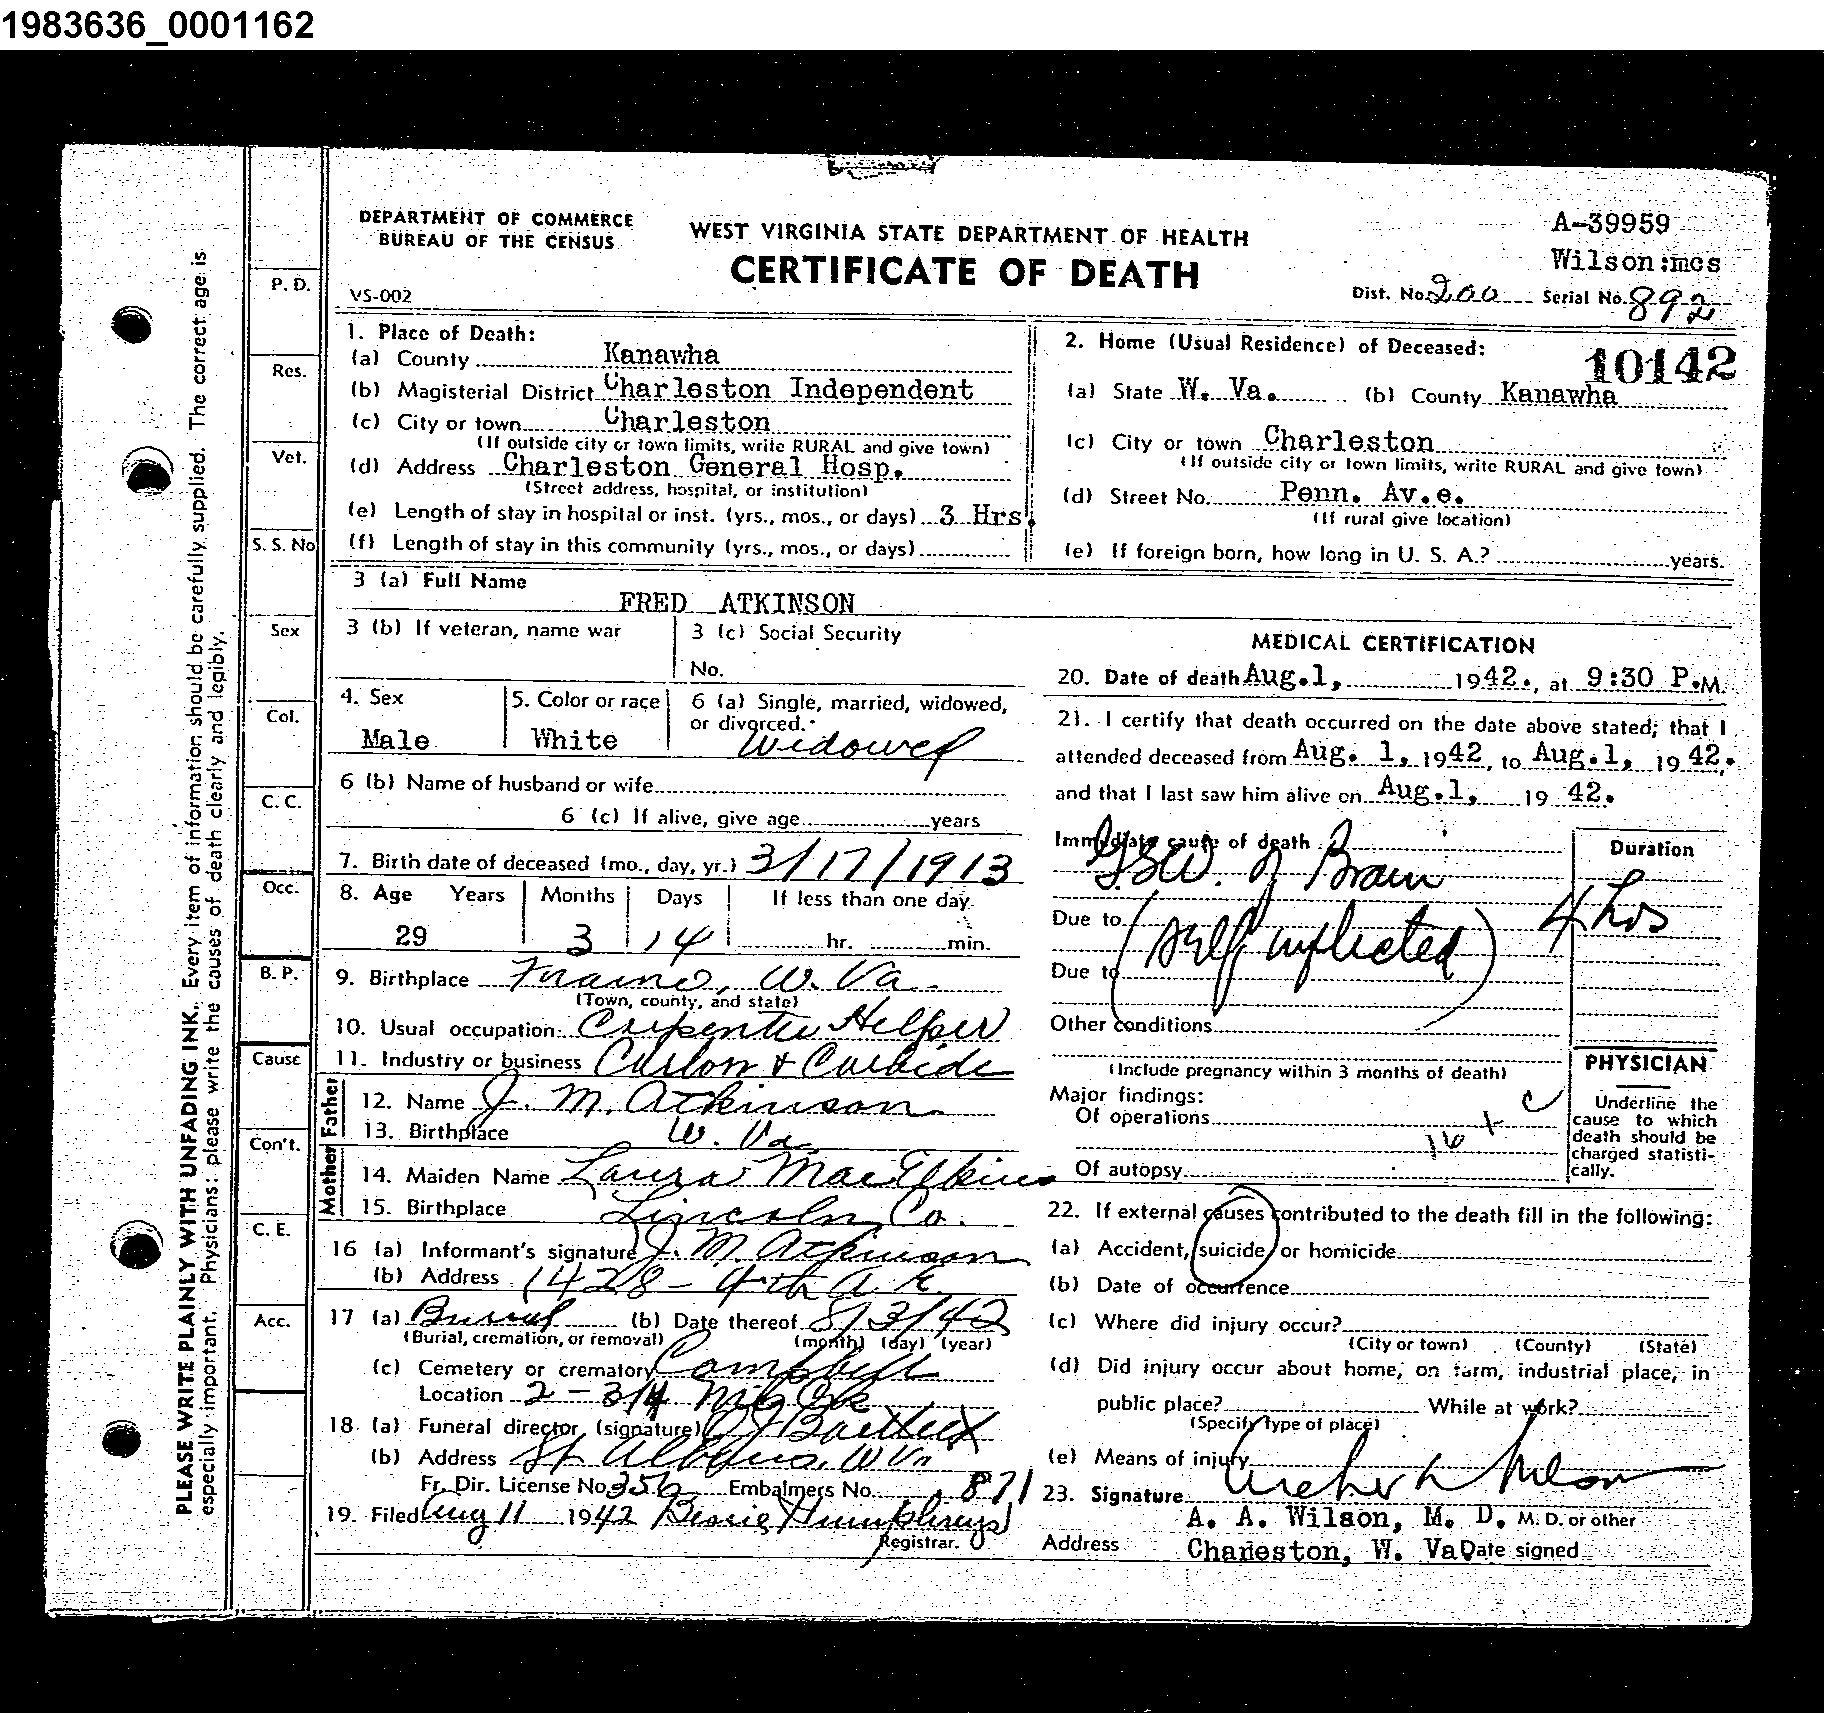 1983636_0001162
DEPARTMENT OF COMMERCE
BUREAU OF THE CENSUS
WEST VIRGINIA STATE DEPARTMENT OF HEALTH
CERTIFICATE OF DEATH
A-39959
Wilson:mcs
VS-002
Dist. No. 200 Serial No. 892
10142
1. Place of Death:
(a) County Kanawha
(b) Magisterial District Charleston Independent
(c) City or town Charleston
(If outside city or town limits, write RURAL and give town)
(d) Address Charleston General Hosp.
(Street address, hospital, or institution)
(e) Length of stay in hospital or inst. (yrs., mos., or days) 3 Hrs.
(f) Length of stay in this community (yrs., mos., or days)
2. Home (Usual Residence) of Deceased:
(a) State W. Va. (b) County Kanawha
(c) City or town Charleston
(If outside city or town limits, write RURAL and give town)
(d) Street No. Penn. Av.e.
(If rural give location)
(e) If foreign born, how long in U. S. A.? years.
3 (a) Full Name
FRED ATKINSON
3 (b) If veteran, name war
3 (c) Social Security
No.
4. Sex
Male
5. Color or race
White
6 (a) Single, married, widowed,
or divorced.
Widowed
6 (b) Name of husband or wife
6 (c) If alive, give age years
7. Birth date of deceased (mo., day, yr.) 3/17/1913
8. Age Years Months Days If less than one day
29 3 14 hr. min.
9. Birthplace W. Va.
(Town, county, and state)
10. Usual occupation Carpenter Helper
11. Industry or business Carbon & Carbide
Father
12. Name J. M. Atkinson
13. Birthplace W. Va.
Mother
14. Maiden Name Laura Mae Elkins
15. Birthplace Lincoln Co.
16 (a) Informant's signature J. M. Atkinson
(b) Address 1428 - 4th A.
17 (a) Burial (b) Date thereof 8/3/42
(Burial, cremation, or removal) (month) (day) (year)
(c) Cemetery or crematory Campbell
Location 2 - 3/4
18 (a) Funeral director (signature)
(b) Address St. Albans, W Va
Fr. Dir. License No. 356 Embalmers No. 871
19. Filed Aug 11 1942 Bessie Humphreys
Registrar.
MEDICAL CERTIFICATION
20. Date of death Aug.1, 1942., at 9:30 P.M.
21. I certify that death occurred on the date above stated; that I
attended deceased from Aug. 1, 1942, to Aug.1, 1942.
and that I last saw him alive on Aug.1, 1942.
Immediate cause of death
G.S.W. of Brain
Duration
4 hrs
Due to (self inflicted)
Due to
Other conditions
(Include pregnancy within 3 months of death)
Major findings:
Of operations
Of autopsy
PHYSICIAN
Underline the
cause to which
death should be
charged statisti-
cally.
22. If external causes contributed to the death fill in the following:
(a) Accident, suicide, or homicide
(b) Date of occurrence
(c) Where did injury occur?
(City or town) (County) (State)
(d) Did injury occur about home, on farm, industrial place, in
public place? While at work?
(Specify type of place)
(e) Means of injury
23. Signature
A. A. Wilson, M. D. M. D. or other
Address Charleston, W. Va. Date signed
P. D.
Res.
Vet.
S. S. No
Sex
Col.
C. C.
Occ.
B. P.
Cause
Con't.
C. E.
Acc.
PLEASE WRITE PLAINLY WITH UNFADING INK. Every item of information should be carefully supplied. The correct age is
especially important. Physicians: please write the causes of death clearly and legibly.